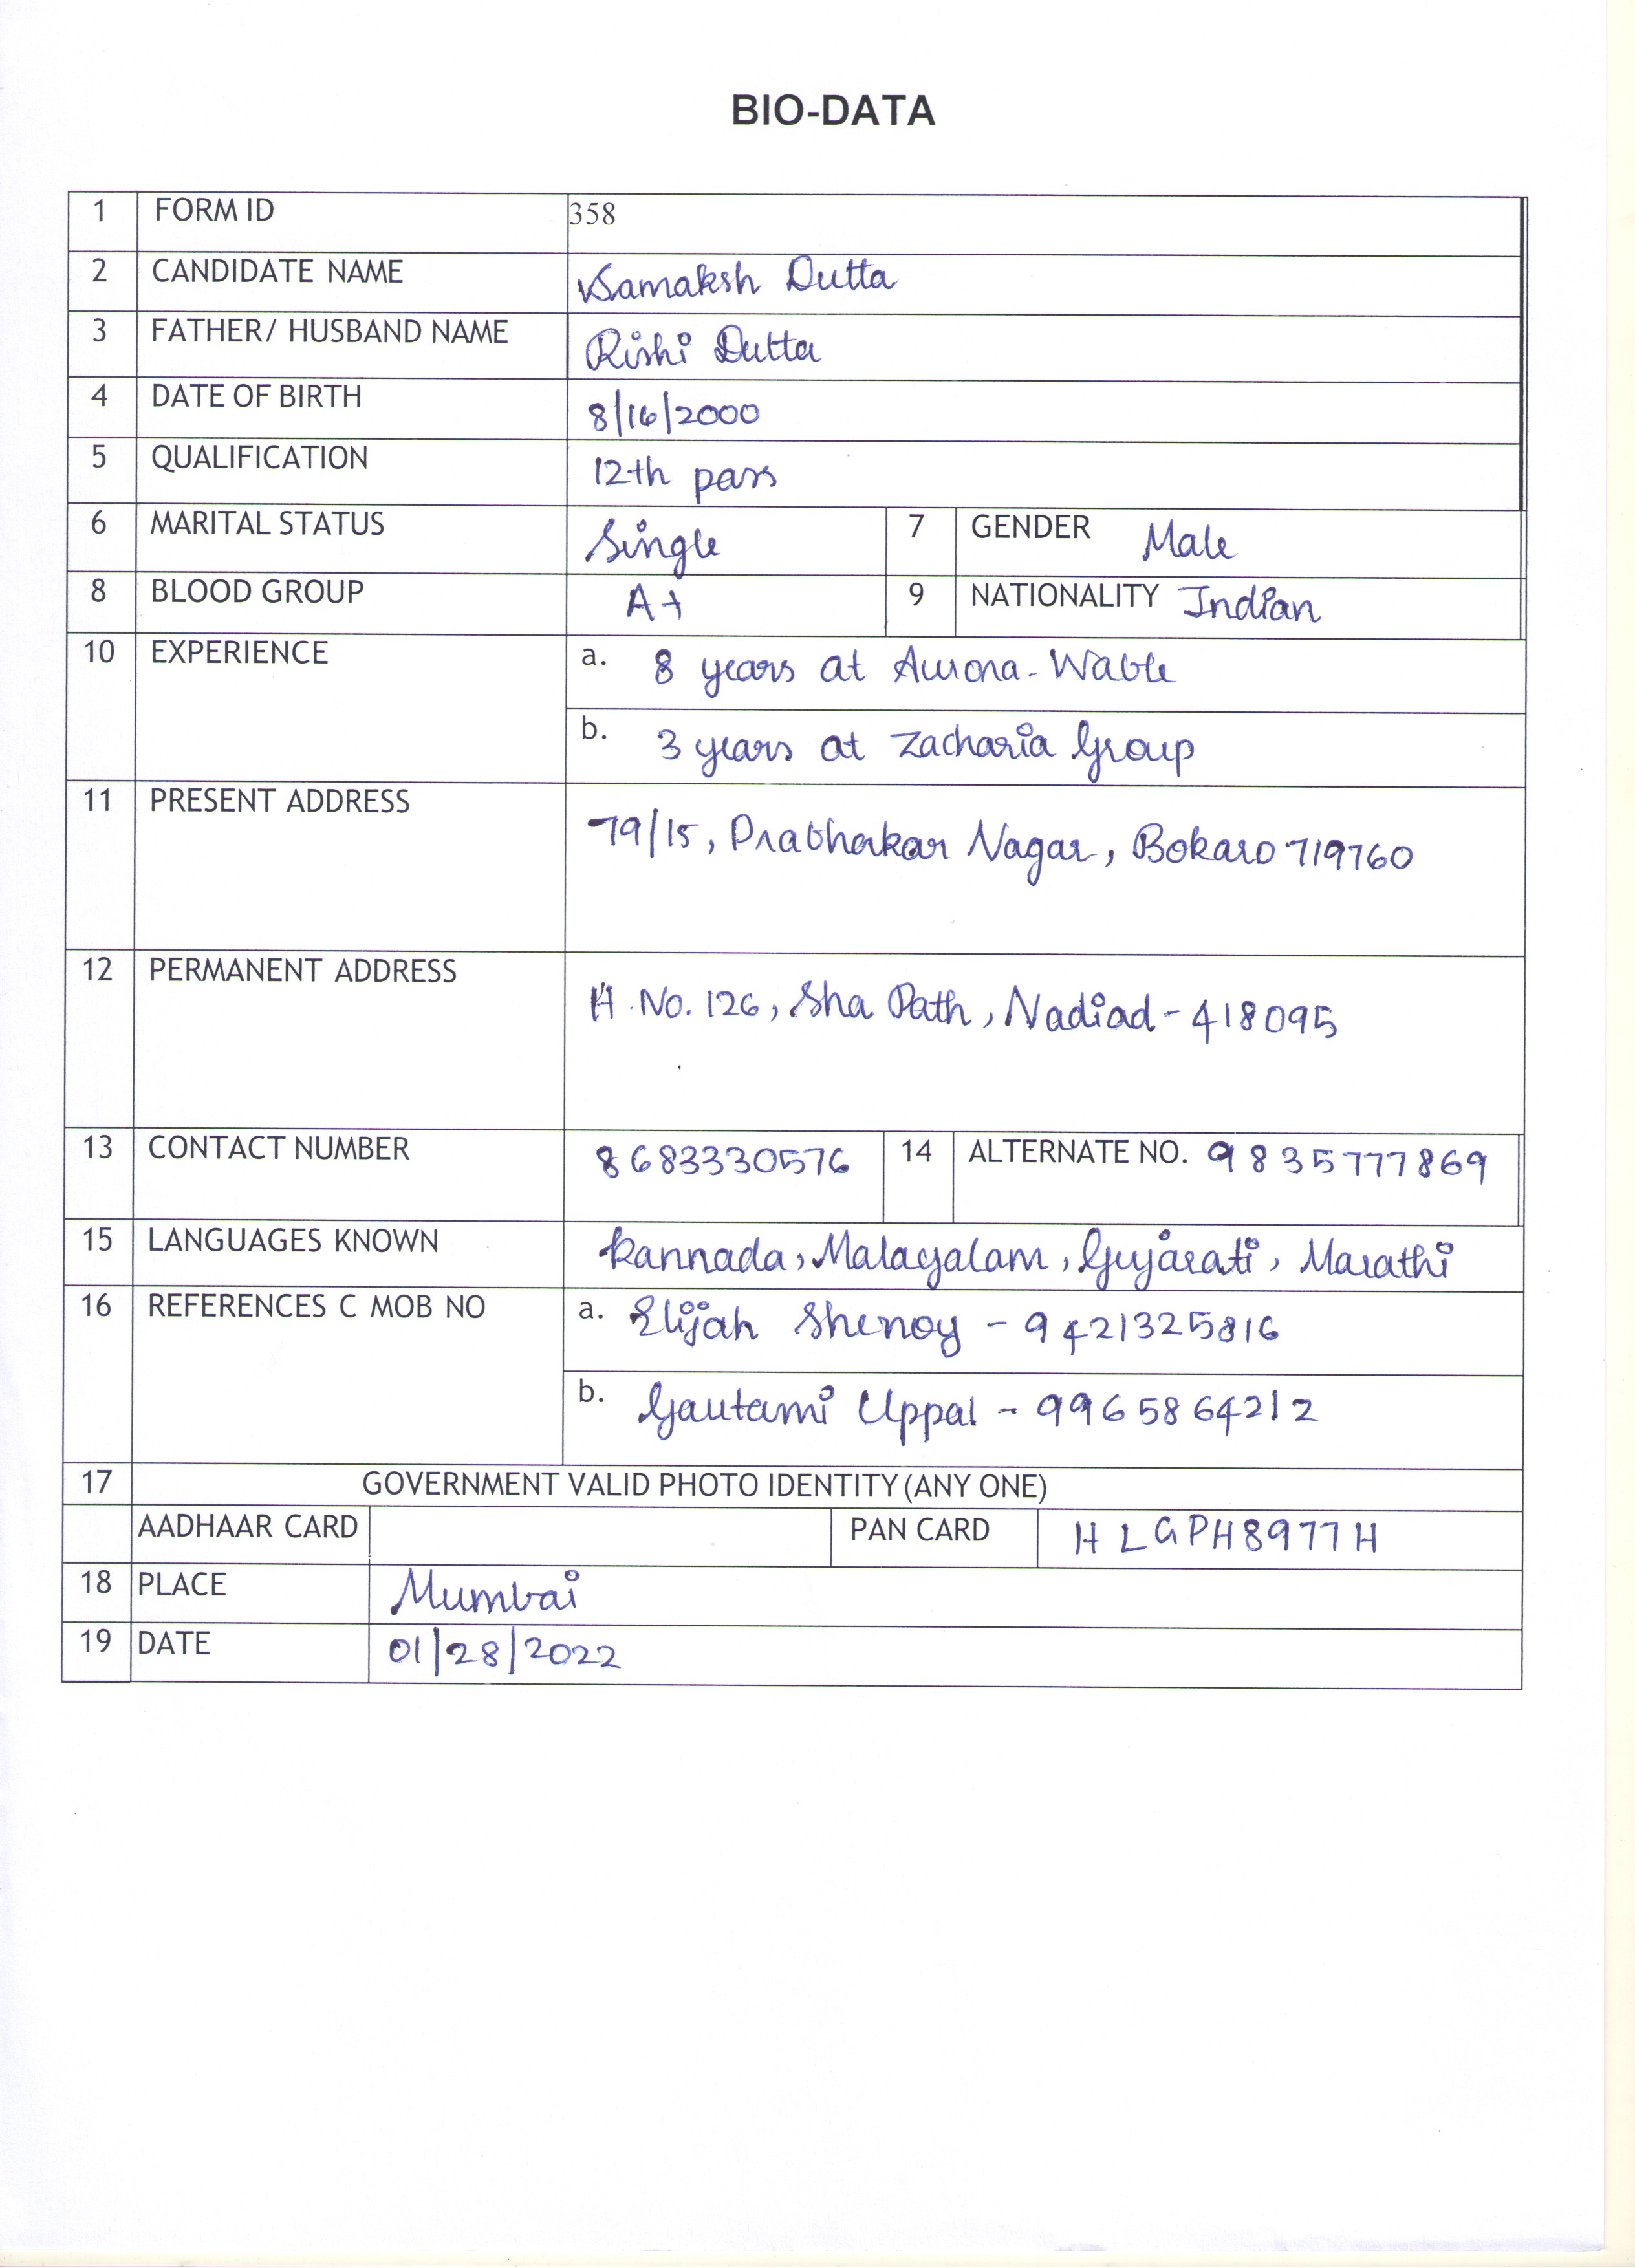 BIO-DATA
1 FORM ID 358
2 CANDIDATE NAME Samaksh Dutta
3 FATHER/ HUSBAND NAME Rishi Dutta
4 DATE OF BIRTH 8/16/2000
5 QUALIFICATION 12th pass
6 MARITAL STATUS Single 7 GENDER Male
8 BLOOD GROUP A+ 9 NATIONALITY Indian
10 EXPERIENCE a. 8 years at Aurora-Wable
b. 3 years at Zacharia Group
11 PRESENT ADDRESS 79/15, Prabhakar Nagar, Bokaro 719760
12 PERMANENT ADDRESS H.No. 126, Sha Path, Nadiad-418095
13 CONTACT NUMBER 8683330576 14 ALTERNATE NO. 9835777869
15 LANGUAGES KNOWN Kannada, Malayalam, Gujarati, Marathi
16 REFERENCES C MOB NO a. Elijah Shenoy - 9421325816
b. Gautami Uppal - 9965864212
17 GOVERNMENT VALID PHOTO IDENTITY (ANY ONE)
AADHAAR CARD PAN CARD HLGPH8977H
18 PLACE Mumbai
19 DATE 01/28/2022